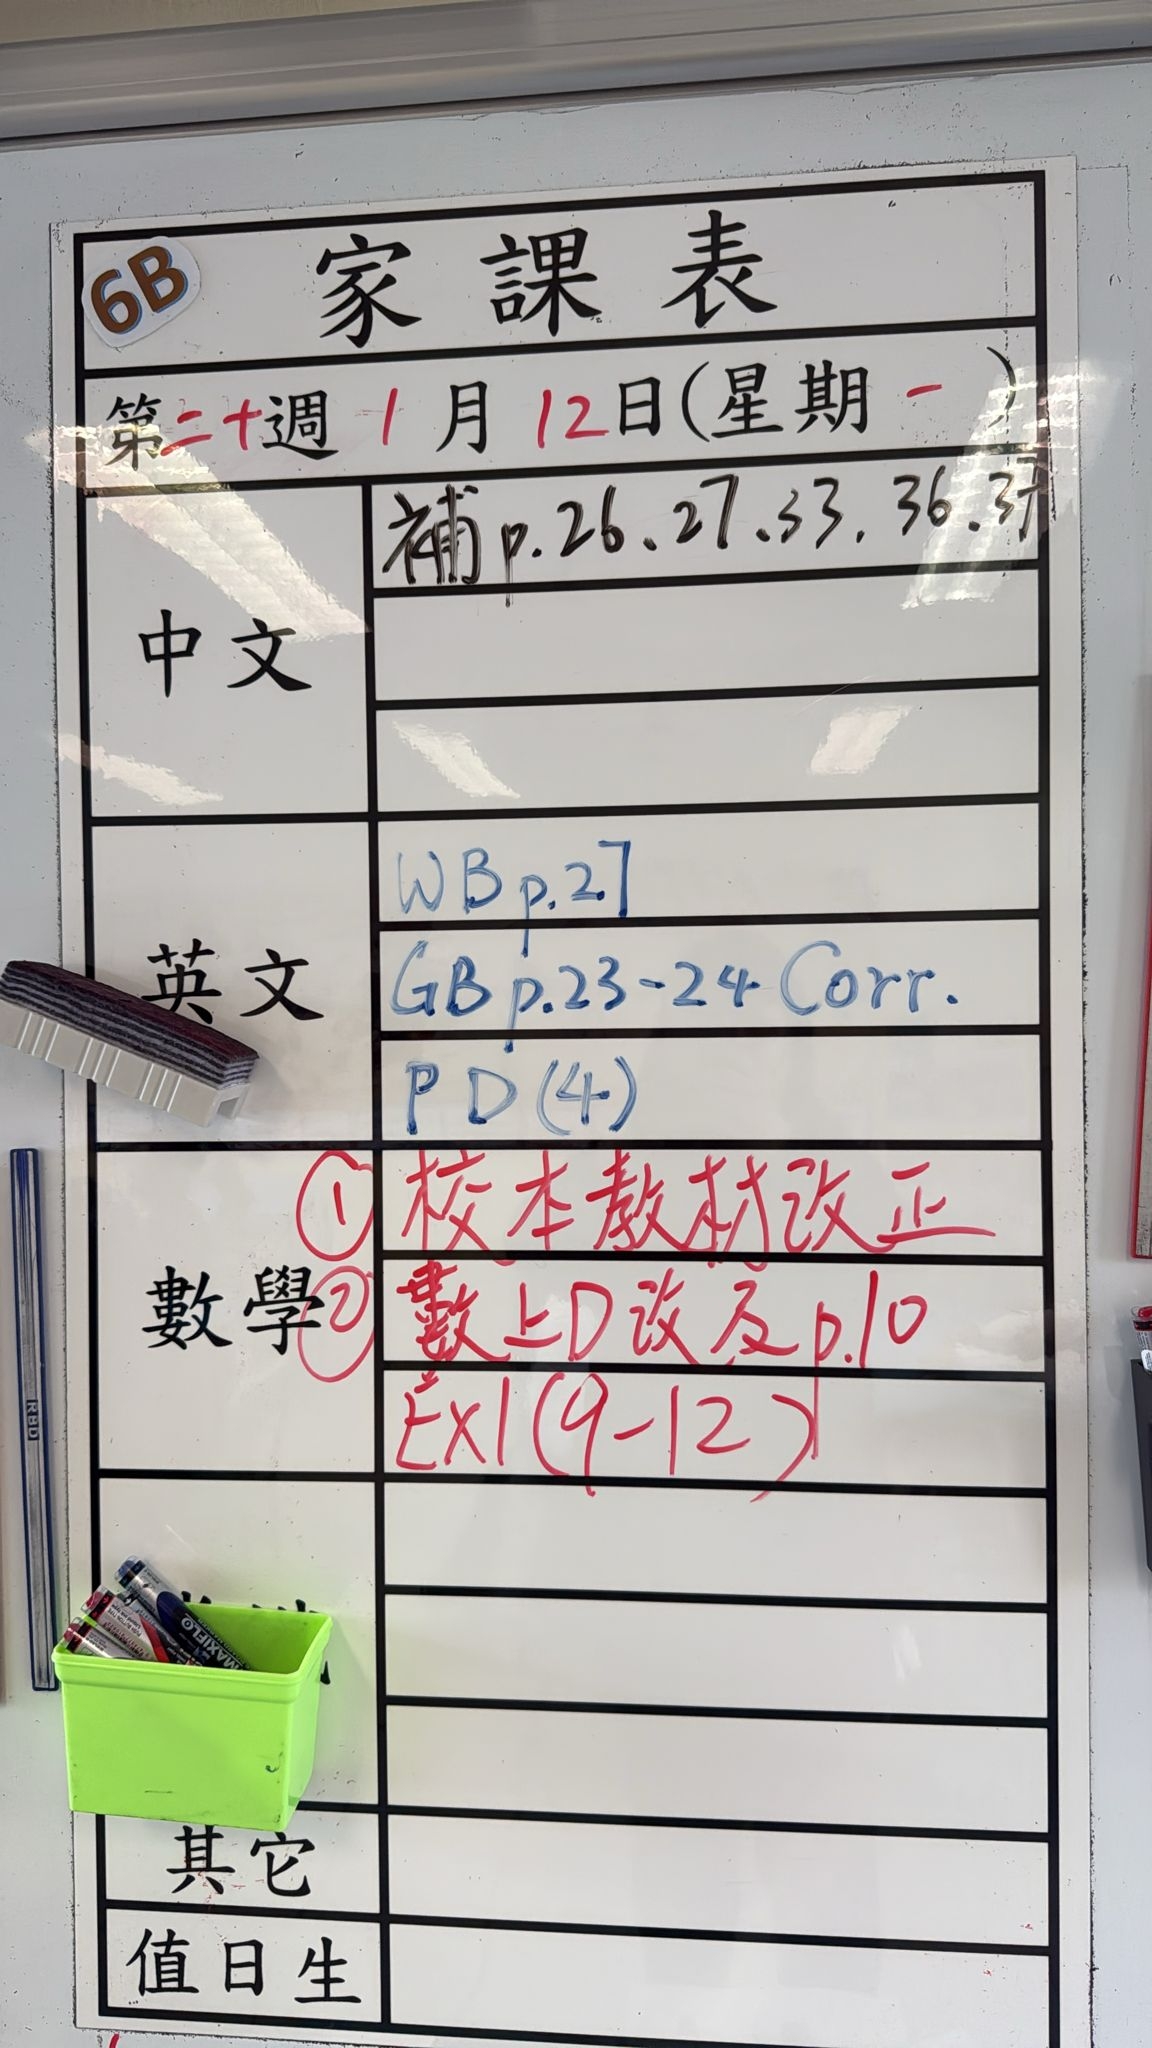 6B
家課表
第二十週 1月12日(星期一)
中文
補p.26、27、33、36、37
英文
WB p.27
GB p.23-24 Corr.
PD(4)
數學
① 校本教材改正
② 數上D改及p.10
Ex1(9-12)
其它
值日生
RBD
MAXIFLO